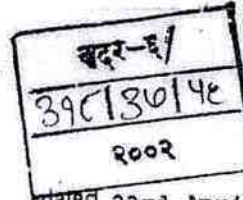 बदर-६/
३१८/३७/५६
२००२